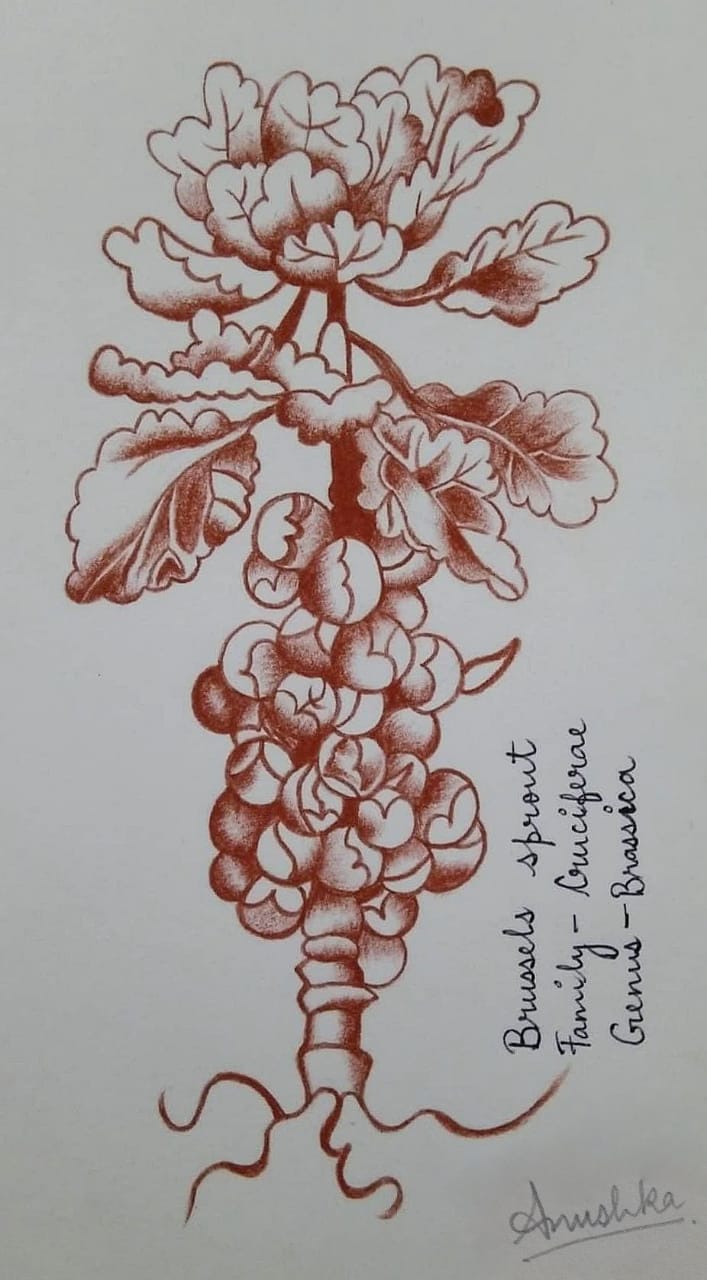 Brussels sprout
Family - Cruciferae
Genus - Brassica
Anushka.